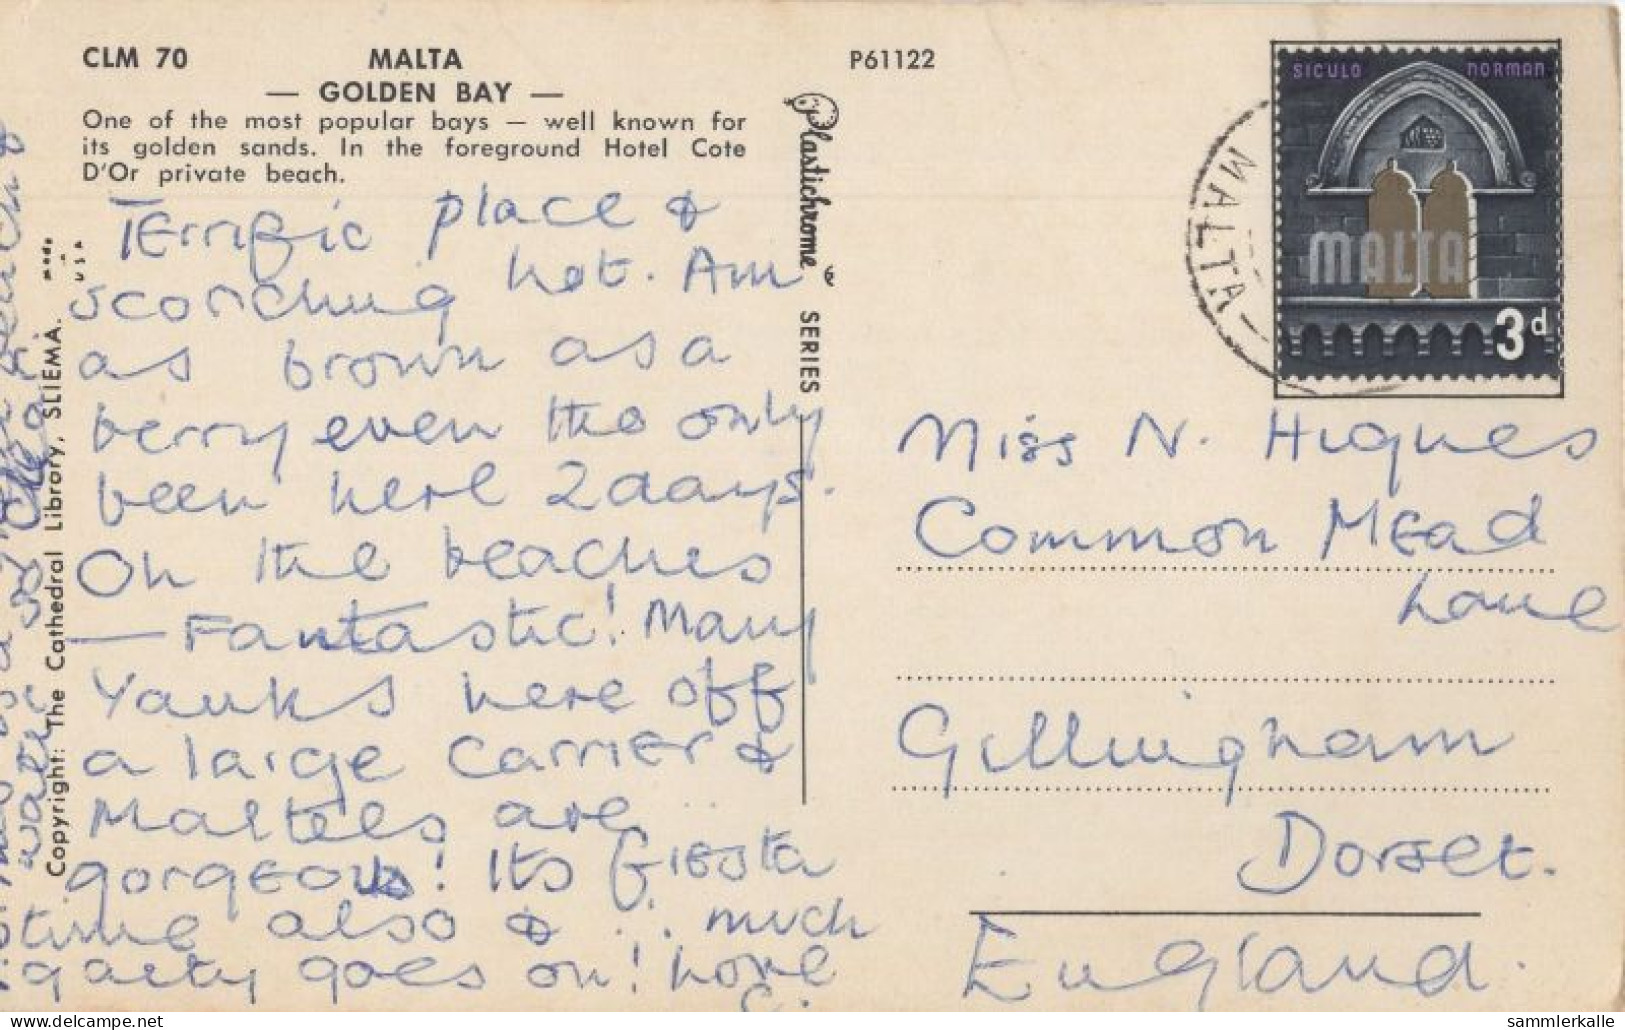 CLM 70 MALTA P61122
— GOLDEN BAY —
One of the most popular bays — well known for
its golden sands. In the foreground Hotel Cote
D'Or private beach.
Terrific place &
scorching hot. Am
as brown as a
berry even tho only
been here 2 days.
Oh the beaches
— Fantastic! Many
Yanks here off
a large carrier &
Maltees are
gorgeous! Its Fiesta
time also & .. much
gaity goes on! Love
Copyright: The Cathedral Library, SLIEMA.
Made
in
USA
Plastichrome ®
SERIES
SICULO NORMAN
MALTA
3d
MALTA
Miss N. Hughes
Common Mead
Lane
Gillingham
Dorset.
England.
sammlerkalle